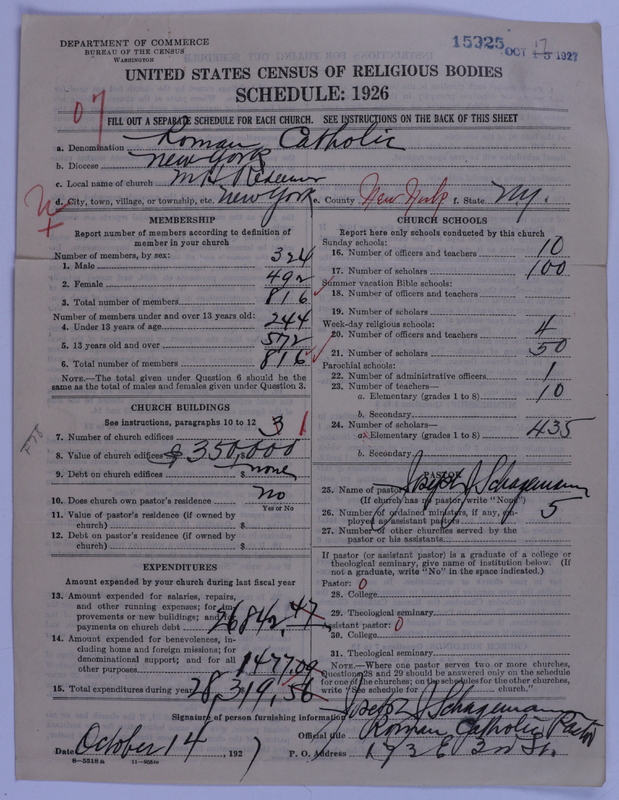 DEPARTMENT OF COMMERCE
BUREAU OF THE CENSUS
WASHINGTON
15325
OCT 15 1927
17
UNITED STATES CENSUS OF RELIGIOUS BODIES
SCHEDULE: 1926
07
FILL OUT A SEPARATE SCHEDULE FOR EACH CHURCH. SEE INSTRUCTIONS ON THE BACK OF THIS SHEET
a. Denomination Roman Catholic
b. Diocese New York
c. Local name of church M. H. Redeemer
d. City, town, village, or township, etc. New York e. County New York f. State N.Y.
MEMBERSHIP
Report number of members according to definition of
member in your church
Number of members, by sex:
1. Male 324
2. Female 492
3. Total number of members 816
Number of members under and over 13 years old:
4. Under 13 years of age 244
5. 13 years old and over 572
6. Total number of members 816
NOTE.—The total given under Question 6 should be the
same as the total of males and females given under Question 3.
CHURCH BUILDINGS
See instructions, paragraphs 10 to 12
7. Number of church edifices 3 1
8. Value of church edifices $ 350,000
9. Debt on church edifices $ none
10. Does church own pastor's residence no
Yes or No
11. Value of pastor's residence (if owned by
church) $
12. Debt on pastor's residence (if owned by
church) $
EXPENDITURES
Amount expended by your church during last fiscal year
13. Amount expended for salaries, repairs,
and other running expenses; for im-
provements or new buildings; and for
payments on church debt 26842.47
14. Amount expended for benevolences, in-
cluding home and foreign missions; for
denominational support; and for all
other purposes 1477.09
15. Total expenditures during year 28,319.56
CHURCH SCHOOLS
Report here only schools conducted by this church
Sunday schools:
16. Number of officers and teachers 10
17. Number of scholars 100
Summer vacation Bible schools:
18. Number of officers and teachers
19. Number of scholars
Week-day religious schools:
20. Number of officers and teachers 4
21. Number of scholars 50
Parochial schools:
22. Number of administrative officers 1
23. Number of teachers—
a. Elementary (grades 1 to 8) 10
b. Secondary
24. Number of scholars—
a. Elementary (grades 1 to 8) 435
b. Secondary
PASTOR
25. Name of pastor Joseph J. Schagemann
(If church has no pastor, write "None")
26. Number of ordained ministers, if any, em-
ployed as assistant pastors 5
27. Number of other churches served by the
pastor or his assistants
If pastor (or assistant pastor) is a graduate of a college or
theological seminary, give name of institution below. (If
not a graduate, write "No" in the space indicated.)
Pastor: 0
28. College
29. Theological seminary
Assistant pastor: 0
30. College
31. Theological seminary
NOTE.—Where one pastor serves two or more churches,
Questions 28 and 29 should be answered only on the schedule
for one of the churches; on the schedules for the other churches,
write "See schedule for church."
Signature of person furnishing information Joseph J. Schagemann
Official title Roman Catholic Pastor
Date October 14, 1927 P. O. Address 173 E 3rd St.
8—5518a 11—9551